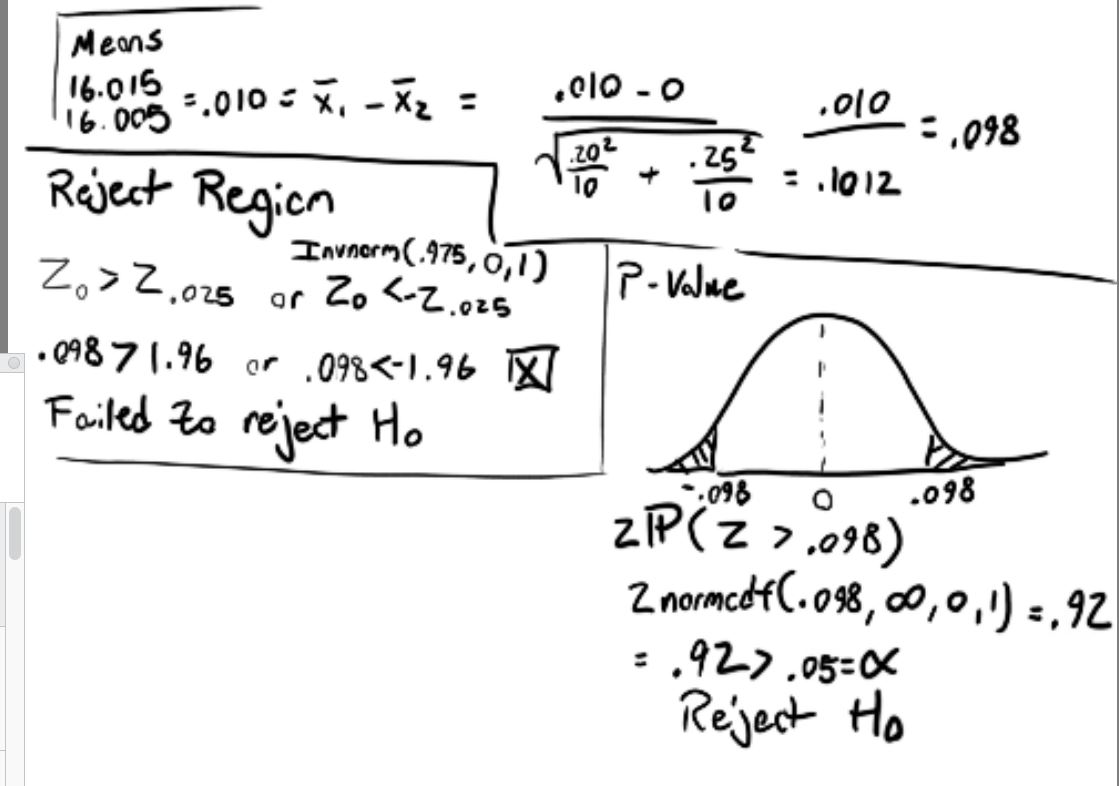 Means
16.015
16.005 = .010 = x̄₁ - x̄₂ = (.010 - 0) / √(.20²/10 + .25²/10) = .010 / .1012 = .098
Reject Region
Invnorm(.975, 0, 1)
Z₀ > Z.₀₂₅ or Z₀ <-Z.₀₂₅
.098 > 1.96 or .098 <-1.96 ☒
Failed to reject H₀
P-Value
-.098 0 .098
2ℙ(Z > .098)
2normcdf(.098, ∞, 0, 1) = .92
= .92 > .05 = α
Reject H₀